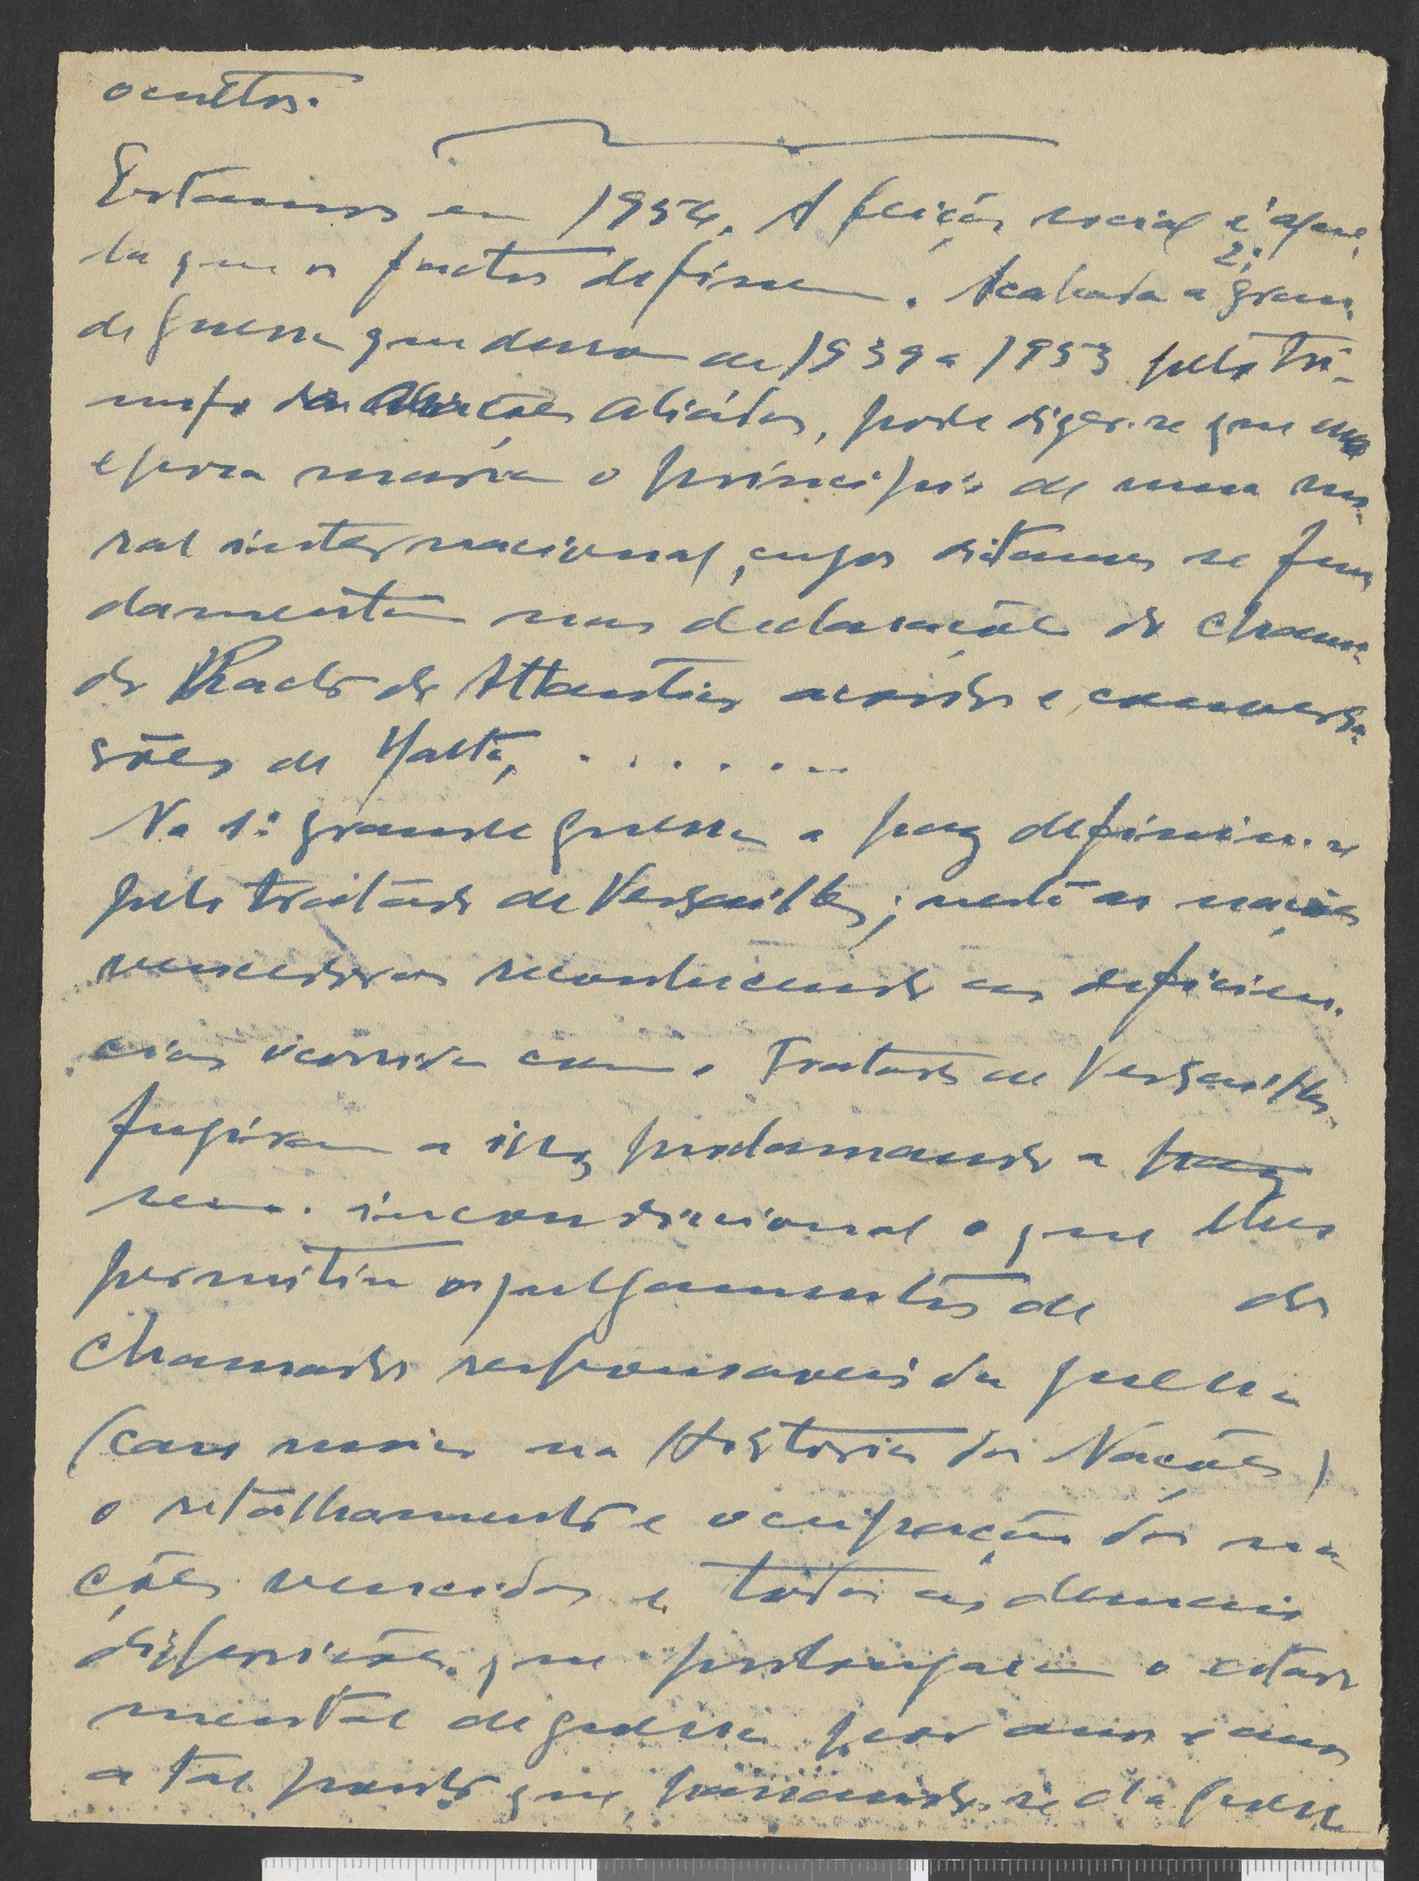 ocultos.
Estamos em 1954. A feição social é aque-
la que os factos definem. Acabada a 2ª gran-
de guerra que durou de 1939 a 1953 pelo tri-
unfo das Nações Aliádas, pode dizer-se que essa
epoca marca o principio de uma mo-
ral internacional, cujos ditames se fun-
damentam nas declarações do chama-
do Pacto do Atlantico acordos e conversa-
ções de Yalta, . . . . . . .
Na 1ª grande guerra a paz definiu-se
pelo tratado de Versailles; nesta as nações
vencedoras reconhecendo as deficien-
cias ocorridas com o Tratado de Versailles
fugiram a isso, proclamando a paz
sem. incondicional o que lhes
permitiu os julgamentos de dos
chamados responsaveis da guerra
(caso unico na Historia das Nações)
o retalhamento e ocupação das na-
ções vencidas e todas as demais
disposições que prolongaram o estado
mental de guerra por anos e anos
a tal ponto que, passando-se da guerra